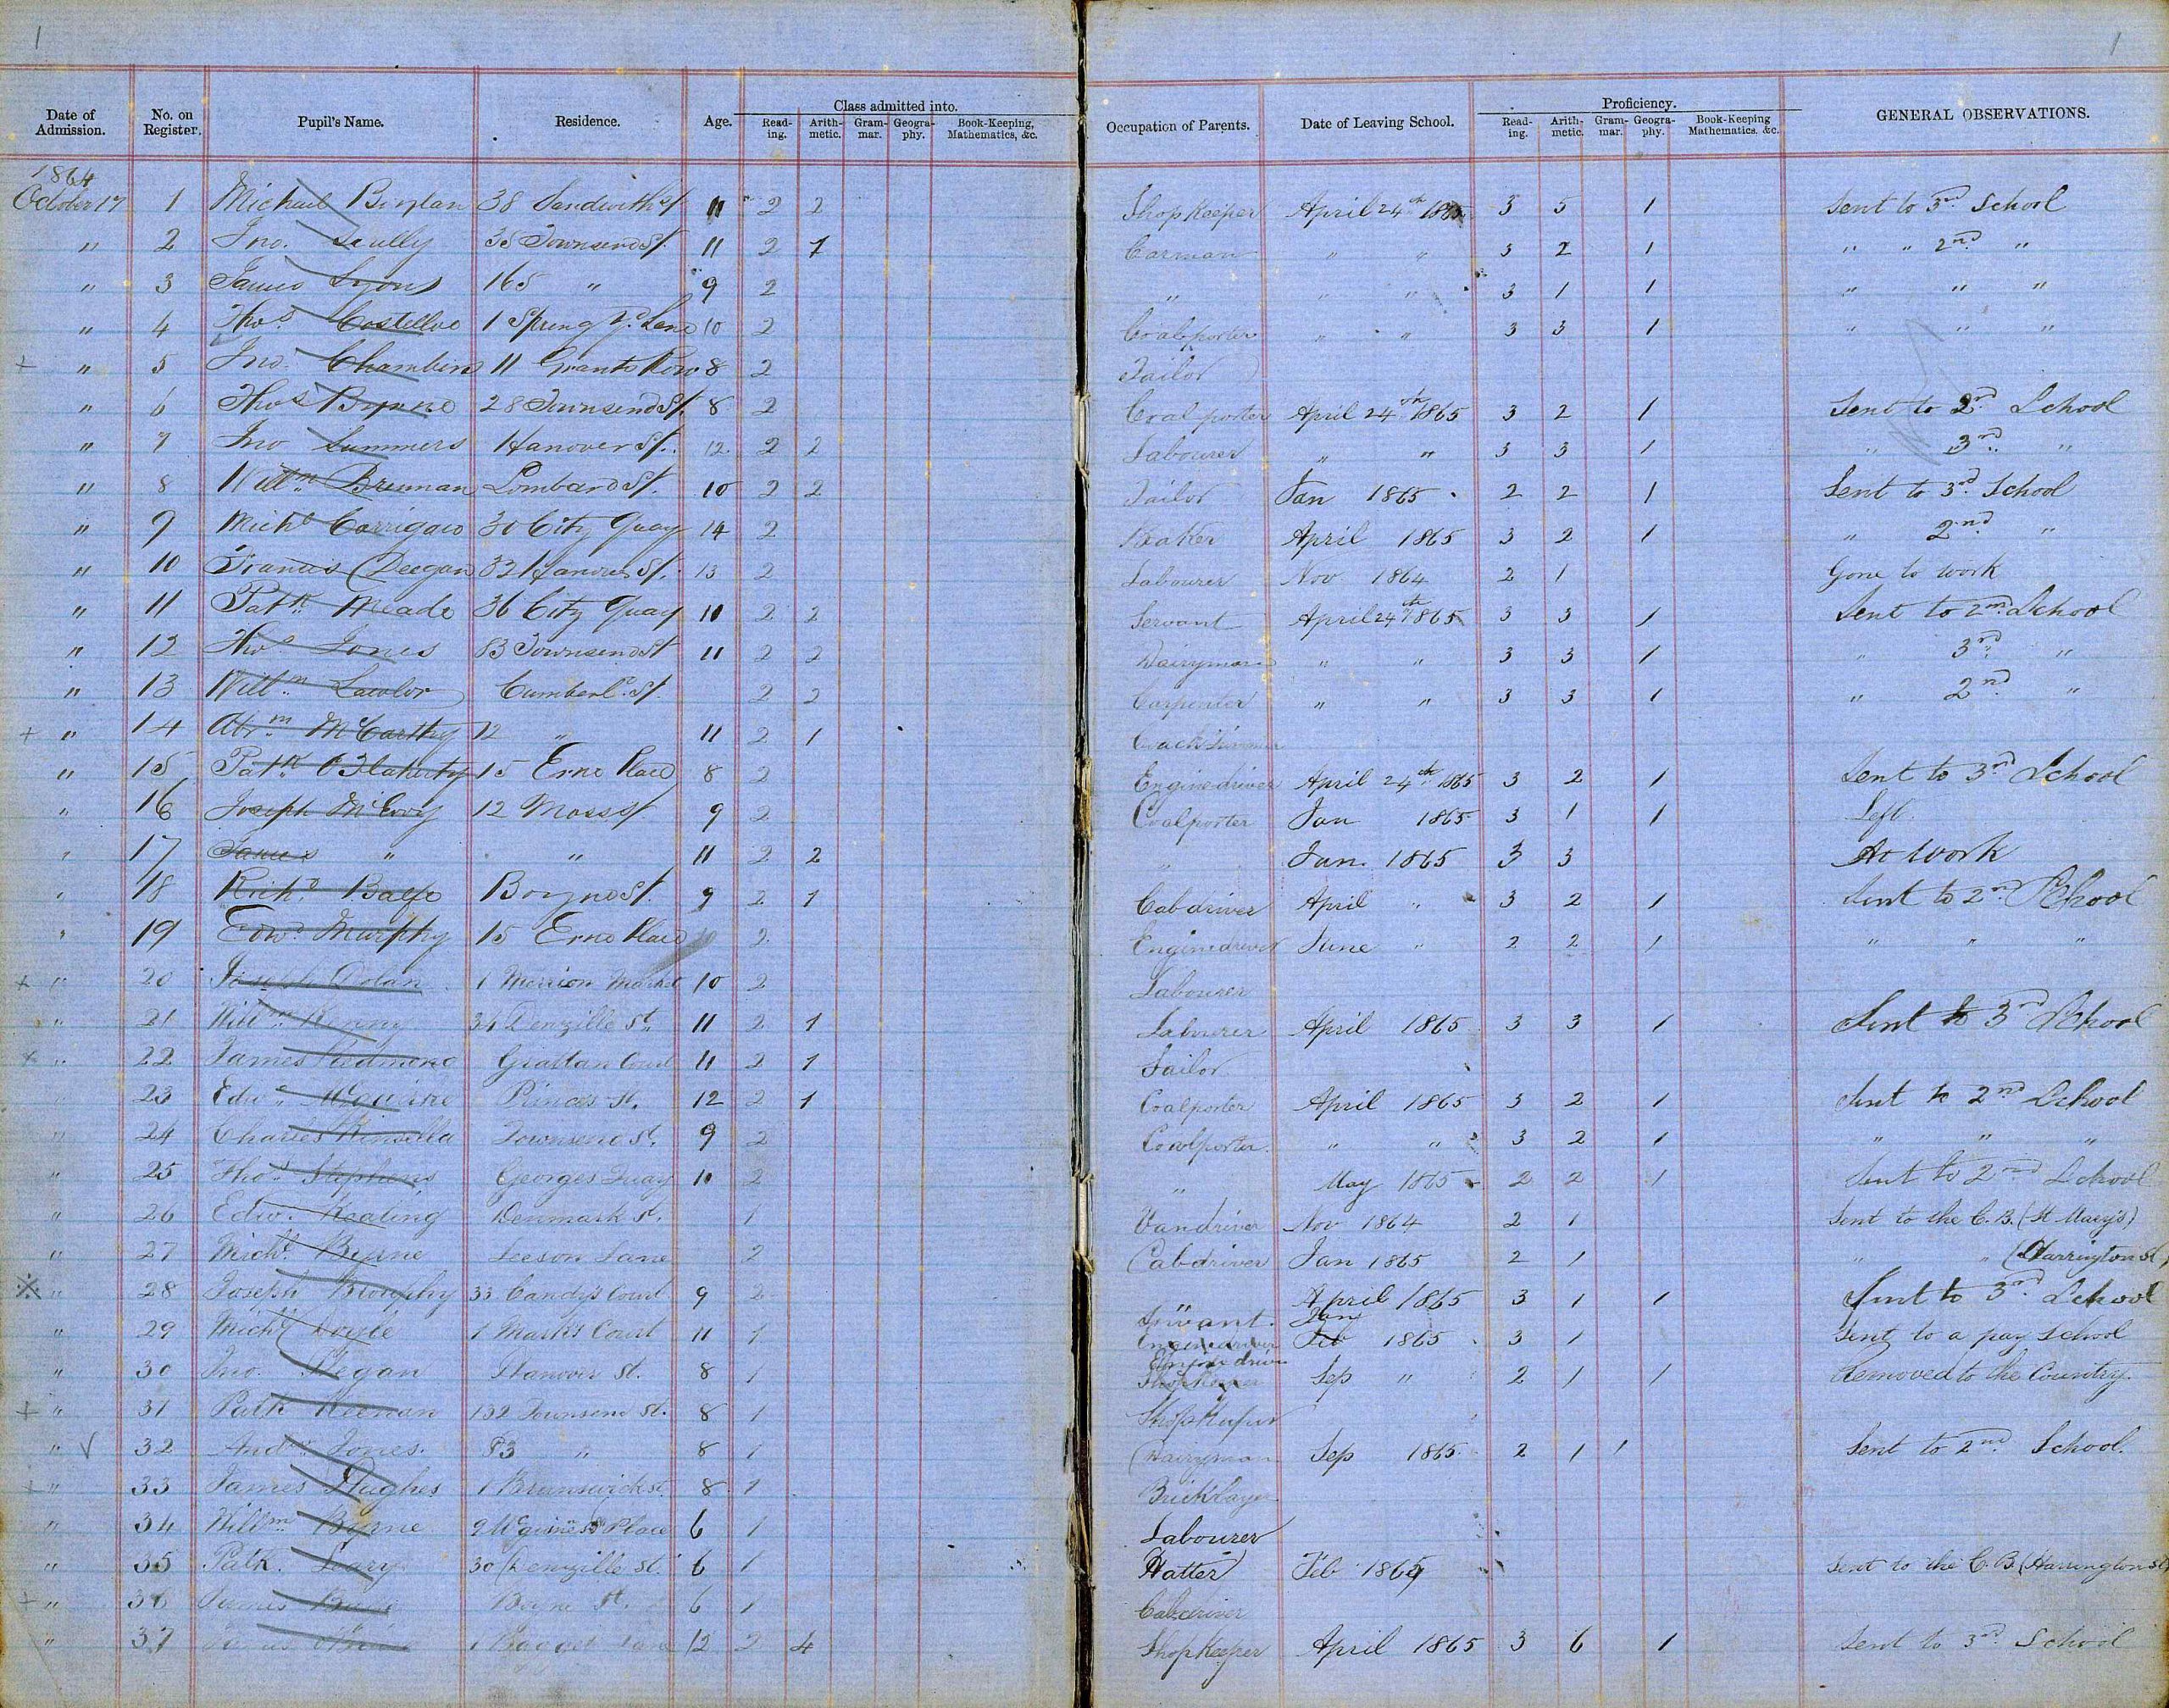 1 1
Date of Admission. No. on Register. Pupil's Name. Residence. Age. Class admitted into. Reading. Arithmetic. Grammar. Geography. Book-Keeping, Mathematics, &c. Occupation of Parents. Date of Leaving School. Proficiency. Reading. Arithmetic. Grammar. Geography. Book-Keeping Mathematics, &c. GENERAL OBSERVATIONS.
1864
October 17 1 Michael 38 Sandwith St 11 2 2 Shopkeeper April 24th 1865 3 5 1 Sent to 3rd School
" 2 Jno. Scully 38 Townsend St. 11 2 1 Carman " " 3 2 1 " " 2nd "
" 3 James Lyons 165 " 9 2 " " " 3 1 1 " " "
" 4 Thos Costelloe 1 Spring Gd. Lane 10 2 Coalporter " " 3 3 1 " " "
+ " 5 Jno. Chambers 11 Grants Row 8 2 Tailor
" 6 Thos Byrne 28 Townsend St. 8 2 Coal porter April 24th 1865 3 2 1 Sent to 2nd School
" 7 Jno Summers Hanover St. 12 2 2 Labourer " " 3 3 1 " 3rd "
" 8 Willm Brennan Lombard St. 10 2 2 Tailor Jan 1865 2 2 1 Sent to 3rd School
" 9 Michl Corrigan 30 City Quay 14 2 Baker April 1865 3 2 1 " 2nd "
" 10 Francis Deegan 32 Hanover St. 13 2 Labourer Nov 1864 2 1 Gone to work
" 11 Patk Meade 36 City Quay 10 2 2 Servant April 24th 1865 3 3 1 Sent to 2nd School
" 12 Thos Jones 83 Townsend St 11 2 2 Dairyman " " 3 3 1 " 3rd "
" 13 Willm Lawlor Cumberld. St. 2 2 Carpenter " " 3 3 1 " 2nd "
+ " 14 Abrm McCarthy 12 " 11 2 1 Coach trimmer
" 15 Patk O'Flaherty 15 Erne Place 8 2 Enginedriver April 24th 1865 3 2 1 Sent to 3rd School
" 16 Joseph McEvoy 12 Moss St 9 2 Coalporter Jan 1865 3 1 1 Left.
" 17 James " " 11 2 2 " Jan. 1865 3 3 At Work
" 18 Richd Balfe Boyne St. 9 2 1 Cabdriver April " 3 2 1 Sent to 2nd School
" 19 Edwd Murphy 15 Erne Place 10 2 Enginedriver June " 2 2 1 " " "
+ " 20 Joseph Dolan 1 Merrion Market 10 2 Labourer
" 21 Willm Kenny 34 Denzille St. 11 2 1 Labourer April 1865 3 3 1 Sent to 3rd School
x " 22 James Redmond Grattan Court 11 2 1 Tailor
" 23 Edwd Maguire Princes St. 12 2 1 Coalporter April 1865 3 2 1 Sent to 2nd School
" 24 Charles Kinsella Townsend St. 9 2 Coalporter. " " 3 2 1 " " "
" 25 Thos Stephens Georges Quay 10 2 " May 1865 2 2 1 Sent to 2nd School
" 26 Edw. Keating Denmark St. 1 Vandriver Nov 1864 2 1 Sent to the C. B. (St Mary's)
" 27 Michl. Byrne Leeson Lane 2 Cabdriver Jan 1865 2 1 " " (Harrington St)
" 28 Joseph Brophy 33 Candys Court 9 2 Servant. April 1865 3 1 1 Sent to 3rd School
" 29 Michl Doyle 1 Marks Court 11 1 Enginedriver Jan Feb 1865 3 1 Sent to a pay School
" 30 Jno. Hanover St. 8 1 Engine driver Sep " 2 1 1 Removed to the Country.
+ " 31 Patk Keenan 132 Townsend St. 8 1 Shopkeeper
" √ 32 Andw Jones. 83 " 8 1 Dairyman Sep 1865 2 1 1 Sent to 2nd School.
+ " 33 James Hughes 1 Brunswick St 8 1 Bricklayer
" 34 Willm Byrne 9 Place 6 1 Labourer
" 35 Patk. Leary 30 Denzille St. 6 1 Hatter Feb 1865 Sent to the C. B. (Harrington St)
+ " 36 James Boyne St. 6 1 Cabdriver
" 37 James 1 Baggot Lane 12 2 4 Shopkeeper April 1865 3 6 1 Sent to 3rd School